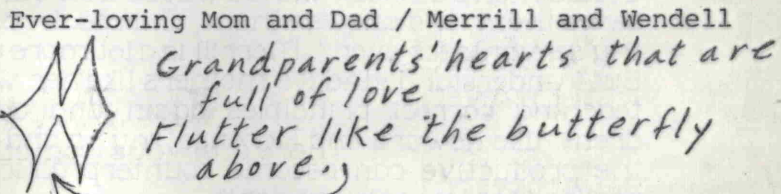 Ever-loving Mom and Dad / Merrill and Wendell
Grandparents' hearts that are
full of love
Flutter like the butterfly
above.